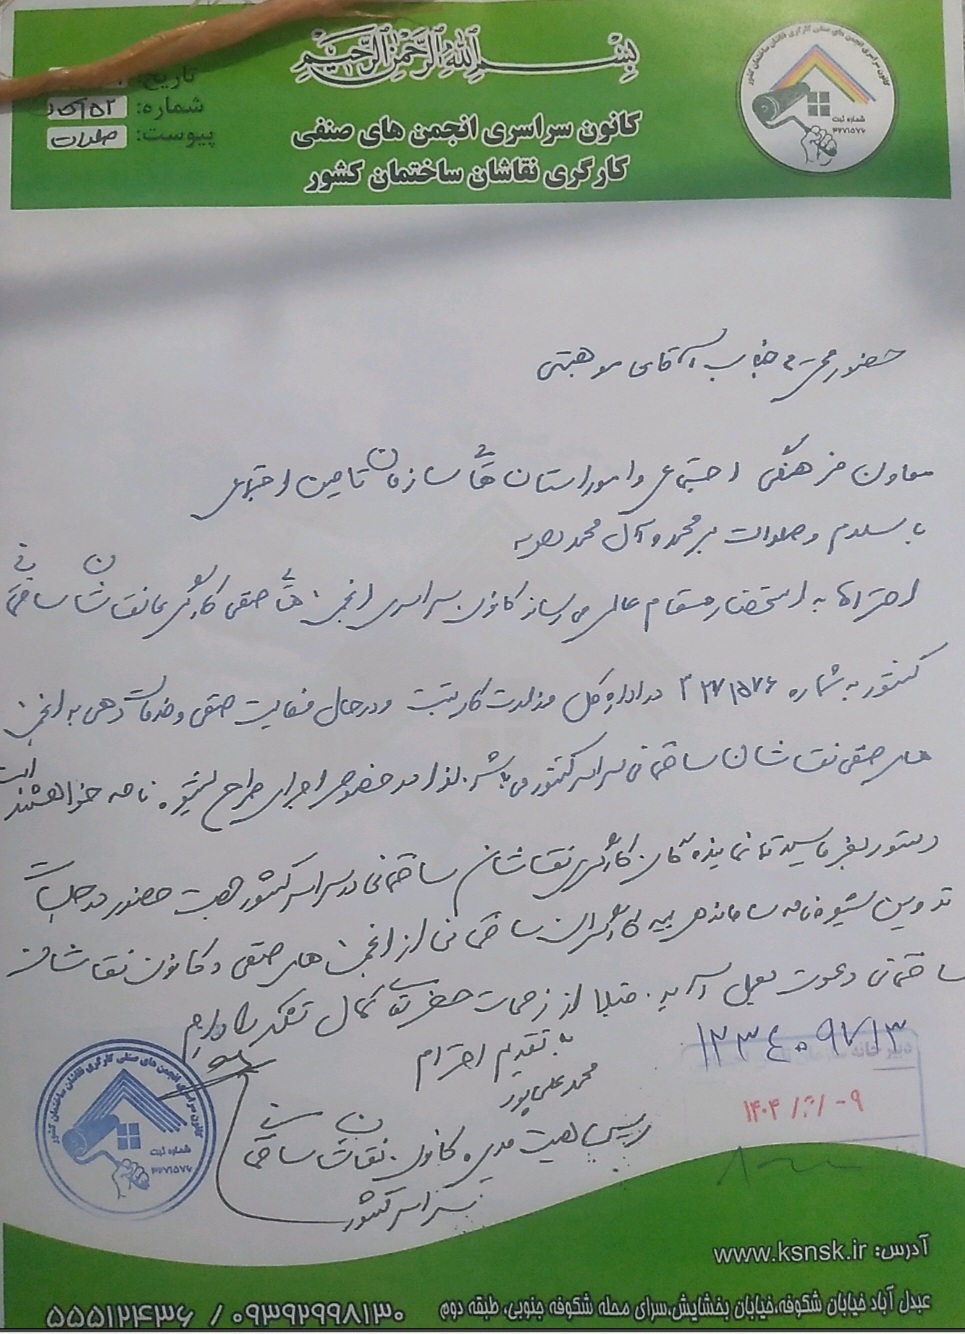 بسم الله الرحمن الرحیم
کانون سراسری انجمن های صنفی
کارگری نقاشان ساختمان کشور
تاریخ:
شماره:
پیوست: صلوات
کانون سراسری انجمن های صنفی کارگری نقاشان ساختمان کشور
شماره ثبت
۳۲۷۱۵۷۶
حضور محترم جناب آقای موهبتی
معاون فرهنگی اجتماعی و امور استان های سازمان تامین اجتماعی
با سلام و صلوات بر محمد و آل محمد
احتراما به استحضار مقام عالی می رساند کانون سراسری انجمن های صنفی کارگری نقاشان ساختمانی
کشور به شماره ۳۲۷۱۵۷۶ در اداره کل وزارت کار ثبت و در حال فعالیت صنفی و خدمات دهی به انجمن
های صنفی نقاشان ساختمانی سراسر کشور می باشد. لذا در خصوص اجرای طرح شیوه نامه خواهشمند است
دستور بفرمایید تا نمایندگان کارگری نقاشان ساختمانی در سراسر کشور جهت حضور در جلسات
تدوین شیوه نامه ساماندهی بیمه کارگران ساختمانی از انجمن های صنفی و کانون نقاشان
ساختمانی دعوت بعمل آید. قبلا از زحمات حضرتعالی کمال تشکر را داریم
با تقدیم احترام
محمد علی پور
رییس هیت مدیره کانون نقاشان ساختمانی
سراسر کشور
۱۲۳۴۰۹۷۱۳
دبیرخانه
کانون سراسری انجمن های صنفی کارگری نقاشان ساختمان کشور
شماره ثبت
۳۲۷۱۵۷۶
آدرس: www.ksnsk.ir
عبدل آباد خیابان شکوفه،خیابان بخشایش،سرای محله شکوفه جنوبی، طبقه دوم
۵۵۵۱۲۴۳۶ / ۰۹۳۹۲۹۹۸۱۳۰